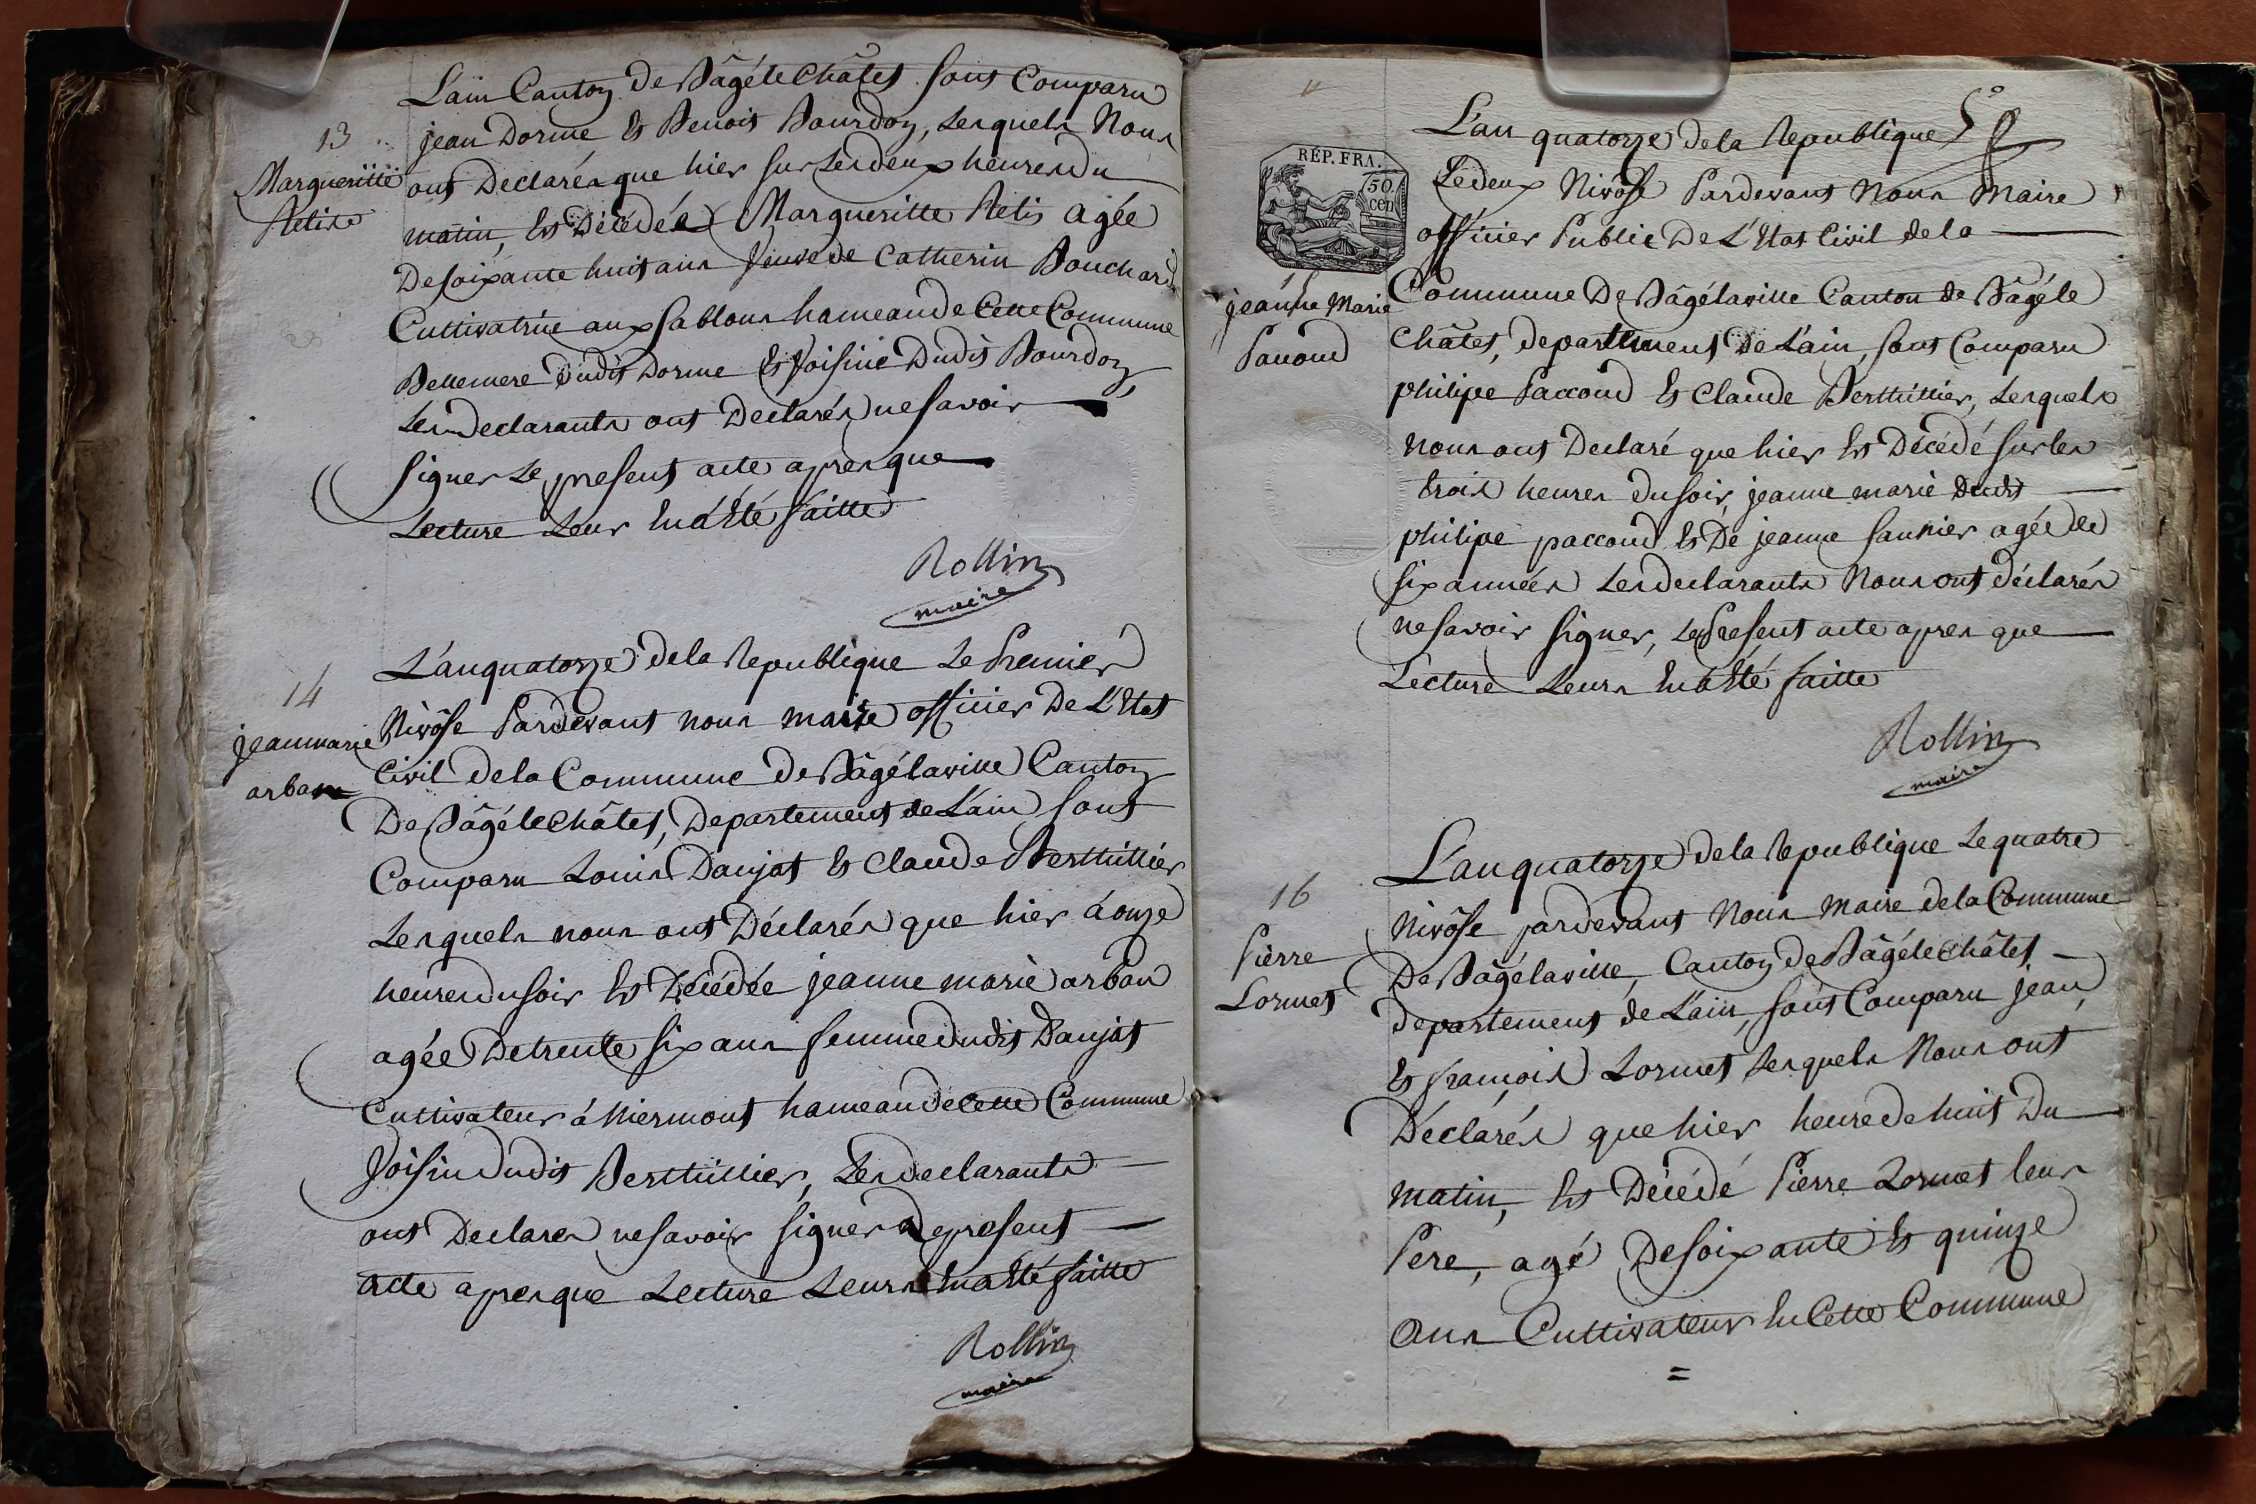 L'ain Canton de Bâgéle Châtel sont Comparu
13
Margueritte
Retis
jean Dorme et Benoit Bourdon, Lesquels Nous
ont Declarés que hier sur les deux heures du
matin, est Décédée Margueritte Retis agée
De soixante huit ans veuve de Catherin Bouchard
Cultivatrice aux sablons hameau de Cette Commune
Bellemere dudit Dorme et voisine Dudit Bourdon,
Les Declarants ont Declarés ne savoir
signer Le present acte apres que
Lecture Leur en á été faitte
Rollin
maire
14
jeanmarie
arban
L'an quatorze de la Republique Le Premier
Nivôse Pardevant nous maire officier De L'Etat
Civil de la Commune De Bâgélaville Canton
De Bâgéle Châtel, Departement de L'ain, sont
Comparu Louis Danjat et Claude Berthillier
Lesquels nous ont Déclarés que hier á onze
heures du soir est Décédée jeanne marie arban
agée De trente six ans femme dudit Danjat
Cultivateur á Niermont hameau de Cette Commune
voisin dudit Berthillier, Les declarants
ont Declares ne savoir signer Le present
acte apres que Lecture Leurs en a été faitte
Rollin
maire
RÉP. FRA.
50
cen
15
jeanne Marie
Pacoud
L'an quatorze de la Republique
Le deux Nivôse Pardevant Nous Maire
officier Public De L'Etat Civil de la
Commune De Bâgélaville Canton de Bâgéle
Châtel, departement de L'ain, sont Comparu
philipe Paccoud et Claude Berthillier, Lesquels
nous ont Declaré que hier est Décédé sur les
trois heures du soir, jeanne marie dudit
philipe paccoud et De jeanne saunier agée de
six années Les declarants Nous ont déclarés
ne savoir signer, Le Present acte apres que
Lecture Leurs en á été faitte
Rollin
maire
16
Pierre
Lormet
L'an quatorze de la Republique Le quatre
Nivôse pardevant Nous maire de la Commune
De Bâgélaville, Canton De Bâgéle Châtel
departement de L'ain, sont Comparu jean,
et françois Lormet Lesquels Nous ont
Déclarés que hier heure de huit Du
matin, est Décédé Pierre Lormet leur
Pere, agé De soixante et quinze
ans Cultivateur en Cette Commune
=